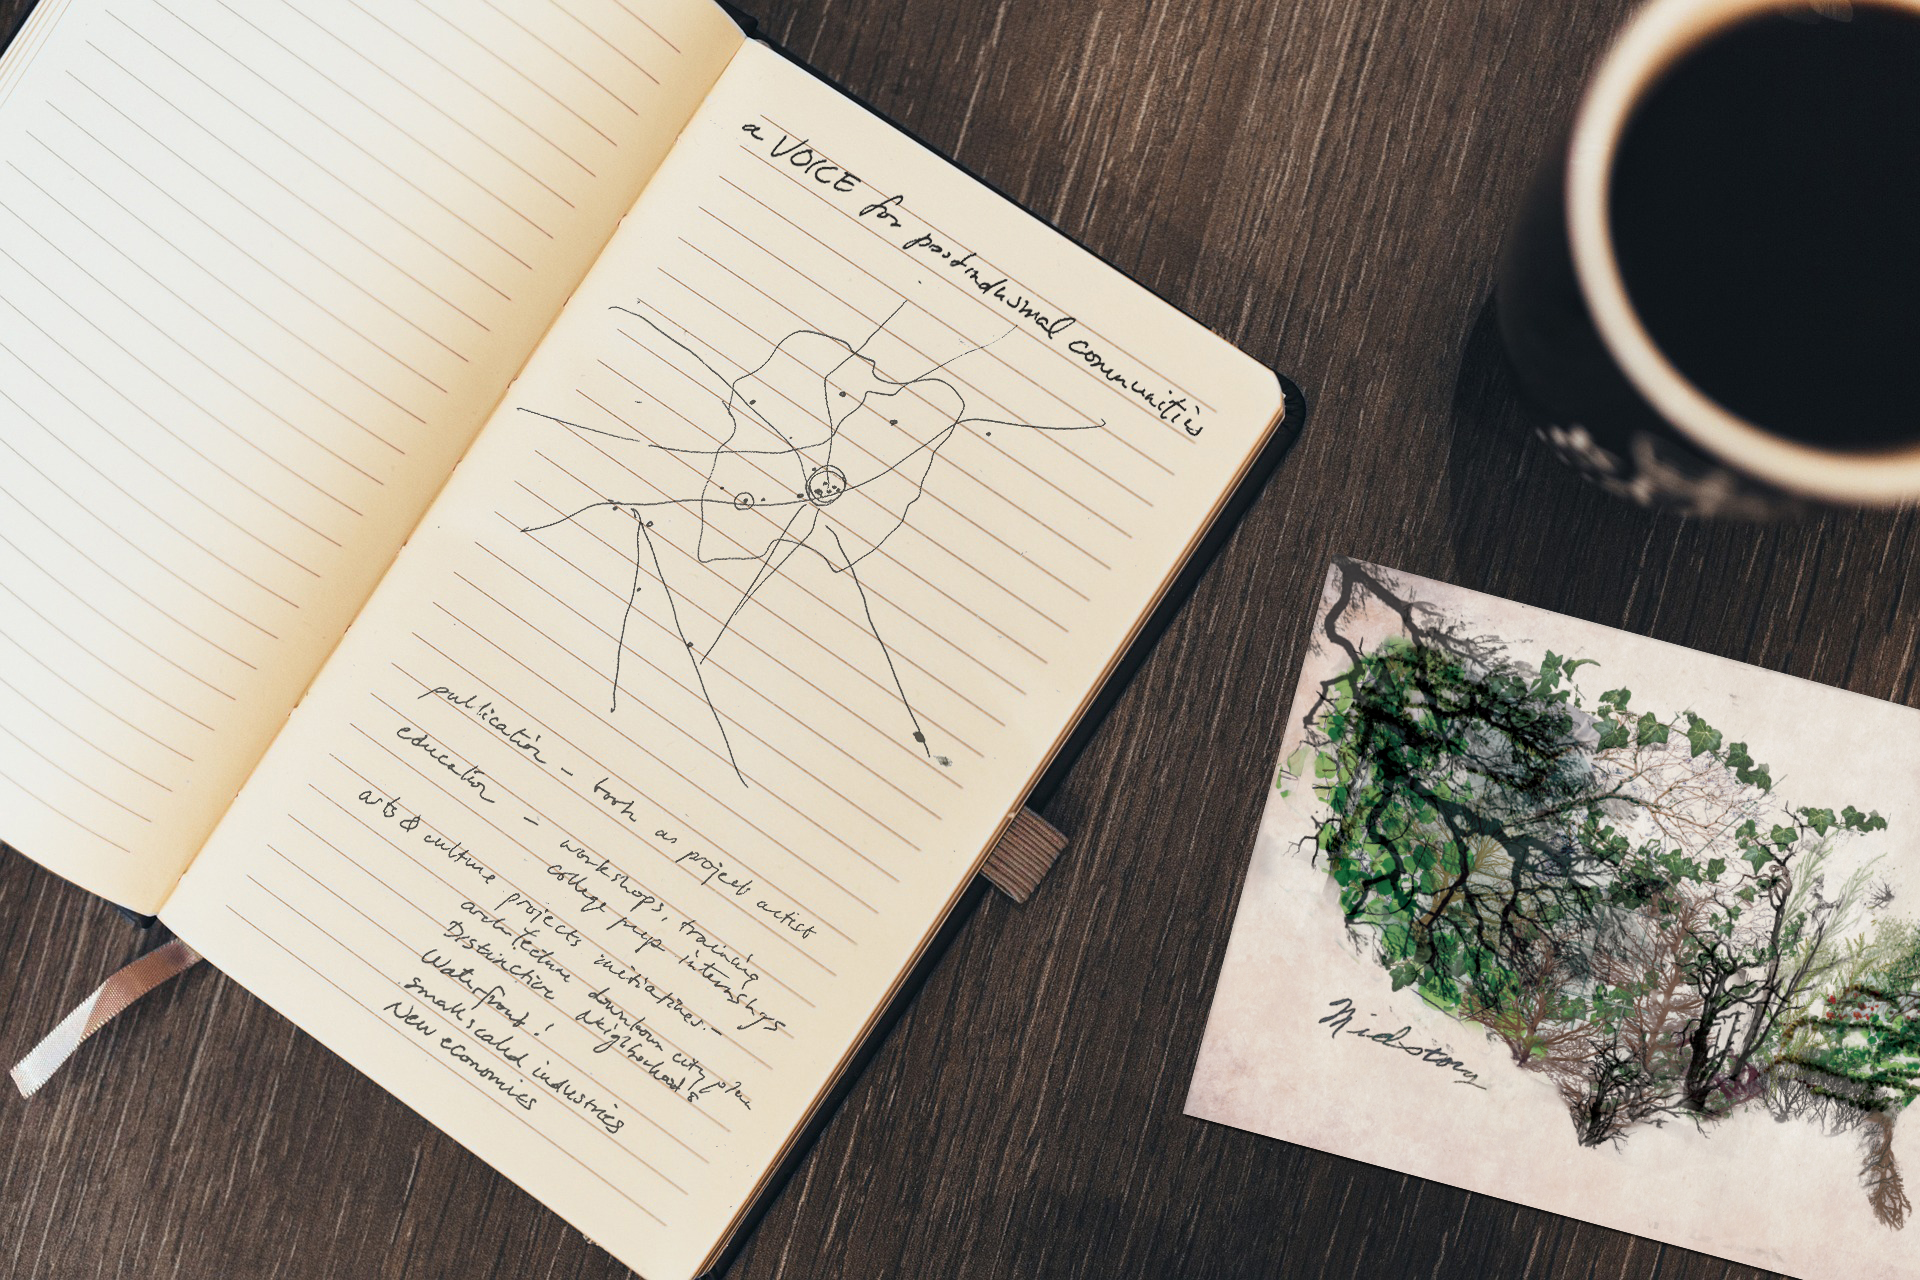 a VOICE for postindustrial communities
publication – book as project artist
education – workshops, training
college prep internships
arts & culture projects initiatives. –
architecture downtown city plan
Distinctive Neighborhoods
Waterfront!
small scaled industries
New economies
Midstory